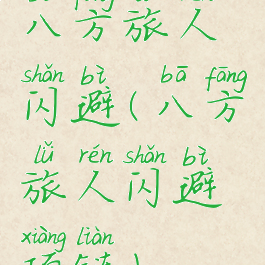 八方旅人
shǎn bì bā fāng
闪避(八方
lǚ rén shǎn bì
旅人闪避
xiàng liàn
项链)